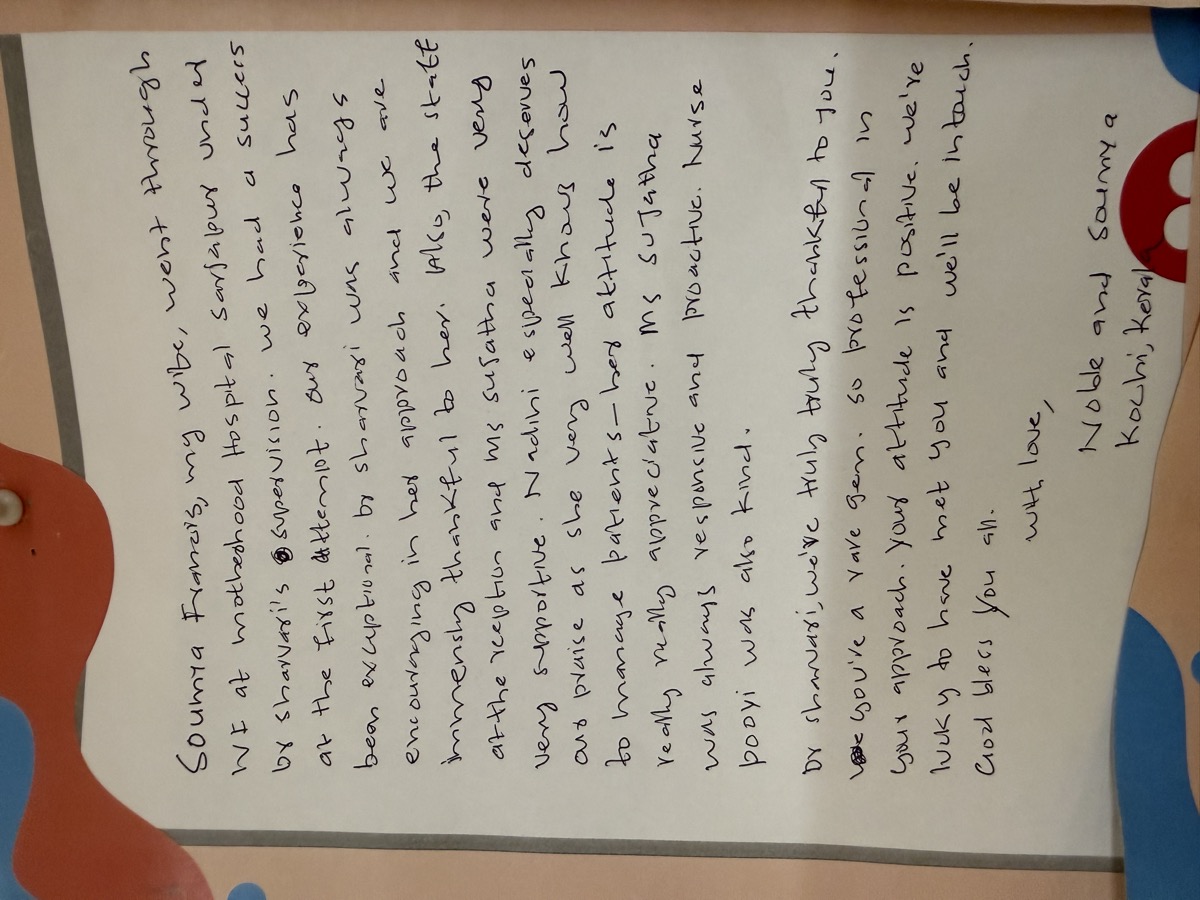 Soumya Francis, my wife, went through
IVF at motherhood Hospital Sarjapur under
Dr sharvari's supervision. we had a success
at the first attempt. our experience has
been exceptional. Dr sharvari was always
encouraging in her approach and we are
immensely thankful to her. Also, the staff
at the reception and Ms sujatha were very
very supportive. Nadini especially deserves
our praise as she very well knows how
to manage patients - her attitude is
really really appreciative. Ms sujatha
was always responsive and proactive. Nurse
pooja was also kind.
Dr sharvari, we're truly truly thankful to you.
you're a rare gem. so professional in
your approach. your attitude is positive. we're
lucky to have met you and we'll be in touch.
God bless you all.
with love,
Noble and Soumya
Kochi, Kerala